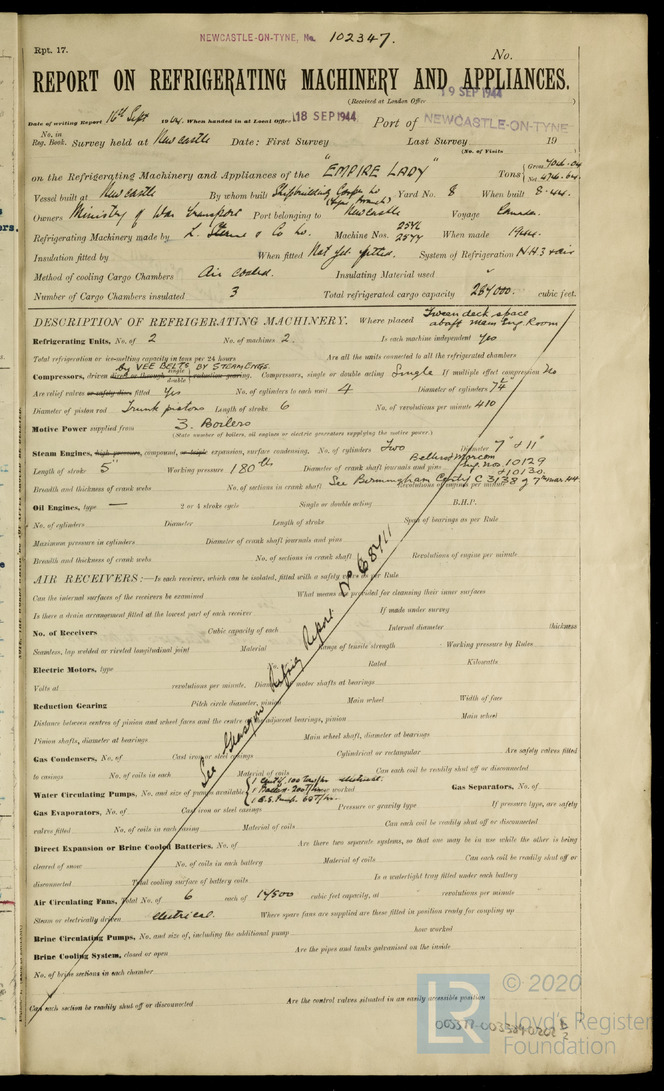 NEWCASTLE-ON-TYNE, No. 102347.
Rpt. 17.
No.
REPORT ON REFRIGERATING MACHINERY AND APPLIANCES.
(Received at London Office 19 SEP 1944 )
Date of writing Report 16th Sept 1944. When handed in at Local Office 18 SEP 1944 Port of NEWCASTLE-ON-TYNE
No. in Reg. Book. Survey held at Newcastle Date: First Survey Last Survey 19
(No. of Visits
on the Refrigerating Machinery and Appliances of the "EMPIRE LADY" Tons Gross Net
Vessel built at Newcastle By whom built Shipbuilding Corpn Ld (Tyne Branch) Yard No. 8 When built 8-44.
Owners Ministry of War Transport Port belonging to Newcastle Voyage Canada.
Refrigerating Machinery made by L. Sterne & Co Ld. Machine Nos. When made 1944.
Insulation fitted by When fitted Not yet fitted. System of Refrigeration NH3 & air
Method of cooling Cargo Chambers Air cooled. Insulating Material used "
Number of Cargo Chambers insulated 3 Total refrigerated cargo capacity 287000. cubic feet.
DESCRIPTION OF REFRIGERATING MACHINERY. Where placed Tween deck space abaft Main Eng Room
Refrigerating Units, No. of 2 No. of machines 2. Is each machine independent Yes
Total refrigeration or ice-melting capacity in tons per 24 hours Are all the units connected to all the refrigerated chambers
by VEE BELTS BY STEAM ENGS.
Compressors, driven direct or through single double reduction gearing. Compressors, single or double acting Single If multiple effect compression No
Are relief valves or safety discs fitted Yes No. of cylinders to each unit 4 Diameter of cylinders 7¼"
Diameter of piston rod Trunk pistons Length of stroke 6 No. of revolutions per minute 410
Motive Power supplied from 3. Boilers
(State number of boilers, oil engines or electric generators supplying the motive power.)
Steam Engines, high pressure, compound, or triple expansion, surface condensing. No. of cylinders Two Diameter 7" & 11"
Belliss & Morcom
Eng. Nos. 10129 & 10130.
Length of stroke 5" Working pressure 180 lbs Diameter of crank shaft journals and pins
See Birmingham Certf C 3138 of 7th Mar 44
Breadth and thickness of crank webs No. of sections in crank shaft Revolutions of engines per minute
Oil Engines, type — 2 or 4 stroke cycle Single or double acting B.H.P.
No. of cylinders Diameter Length of stroke Span of bearings as per Rule
Maximum pressure in cylinders Diameter of crank shaft journals and pins
Breadth and thickness of crank webs No. of sections in crank shaft Revolutions of engine per minute
AIR RECEIVERS:—Is each receiver, which can be isolated, fitted with a safety valve as per Rule
Can the internal surfaces of the receivers be examined What means are provided for cleaning their inner surfaces
Is there a drain arrangement fitted at the lowest part of each receiver If made under survey
No. of Receivers Cubic capacity of each Internal diameter thickness
Seamless, lap welded or riveted longitudinal joint Material Range of tensile strength Working pressure by Rules
Electric Motors, type Rated Kilowatts
Volts at revolutions per minute. Diameter of motor shafts at bearings
Reduction Gearing Pitch circle diameter, pinion Main wheel Width of face
Distance between centres of pinion and wheel faces and the centre of the adjacent bearings, pinion Main wheel
Pinion shafts, diameter at bearings Main wheel shaft, diameter at bearings
See Glasgow Refrig Report No 68411
Gas Condensers, No. of Cast iron or steel casings Cylindrical or rectangular Are safety valves fitted
to casings No. of coils in each Material of coils Can each coil be readily shut off or disconnected
Water Circulating Pumps, No. and size of pumps available how worked Gas Separators, No. of
Gas Evaporators, No. of Cast iron or steel casings Pressure or gravity type If pressure type, are safety
valves fitted No. of coils in each casing Material of coils Can each coil be readily shut off or disconnected
Direct Expansion or Brine Cooled Batteries, No. of Are there two separate systems, so that one may be in use while the other is being
cleared of snow No. of coils in each battery Material of coils Can each coil be readily shut off or
disconnected Total cooling surface of battery coils Is a watertight tray fitted under each battery
Air Circulating Fans, Total No. of 6 each of 14500 cubic feet capacity, at revolutions per minute
Steam or electrically driven electrical. Where spare fans are supplied are these fitted in position ready for coupling up
Brine Circulating Pumps, No. and size of, including the additional pump hour worked
Brine Cooling System, closed or open Are the pipes and tanks galvanised on the inside
No. of brine sections in each chamber
Can each section be readily shut off or disconnected Are the control valves situated in an easily accessible position
LR
© 2020
Lloyd's Register
Foundation